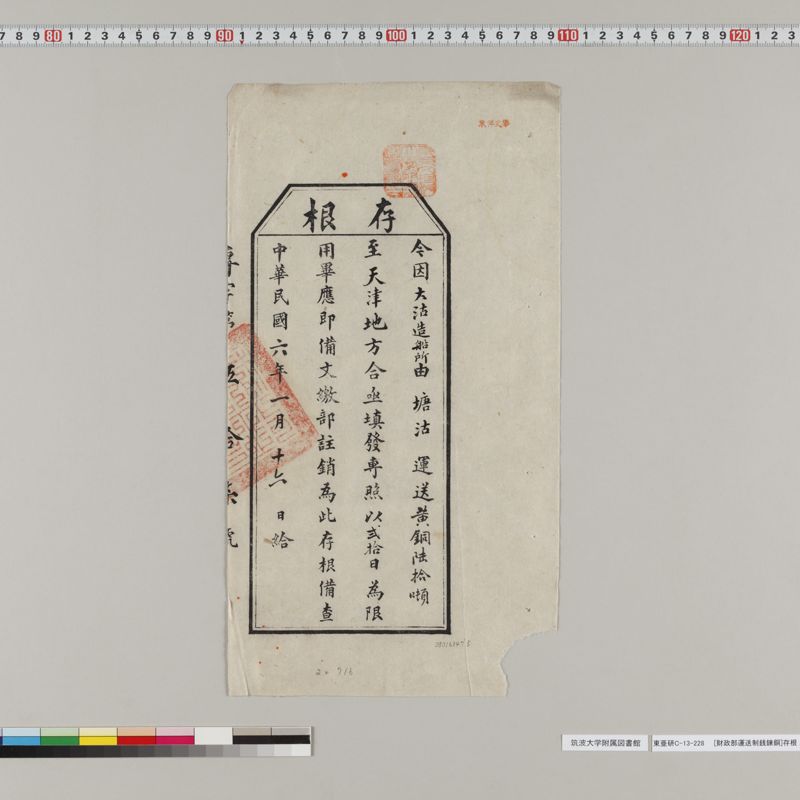 7 8 9 80 1 2 3 4 5 6 7 8 9 90 1 2 3 4 5 6 7 8 9 100 1 2 3 4 5 6 7 8 9 110 1 2 3 4 5 6 7 8 9 120 1 2 3
存根
今因大沽造船所由 塘沽 運送黃銅陸拾噸
至天津地方合亟填發專照以弍拾日為限
用畢應即備文繳部註銷為此存根備查
中華民國六年一月十六日給
筑波大学附属図書館
東亜研C-13-228 [財政部運送制銭錬銅]存根